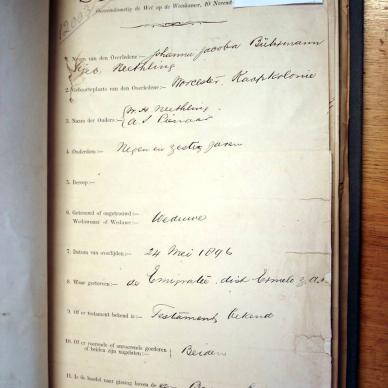 12003
Overeenkomstig de Wet op de Weeskamer, 10 Novem
1. Naam van den Overledene:— Johanna Jacoba Bührmann
geb. Neethling
2. Geboorteplaats van den Overledene:— Worcester, Kaapkolonie
3. Namen der Ouders:— W. H. Neethling
A. S. Pienaar
4. Ouderdom:— Negen en zestig jaren
5. Beroep:—
6. Getrouwd of ongetrouwd:—
Weduwnaar of Weduwe:— Weduwe
7. Datum van overlijden:— 24 Mei 1896
8. Waar gestorven:— de Emigratie, dist Ermelo z.a.r.
9. Of er testament bekend is:— Testament bekend
10. Of er roerende of onroerende goederen
of beiden zijn nagelaten:— Beiden
11. Is de boedel naar gissing boven de